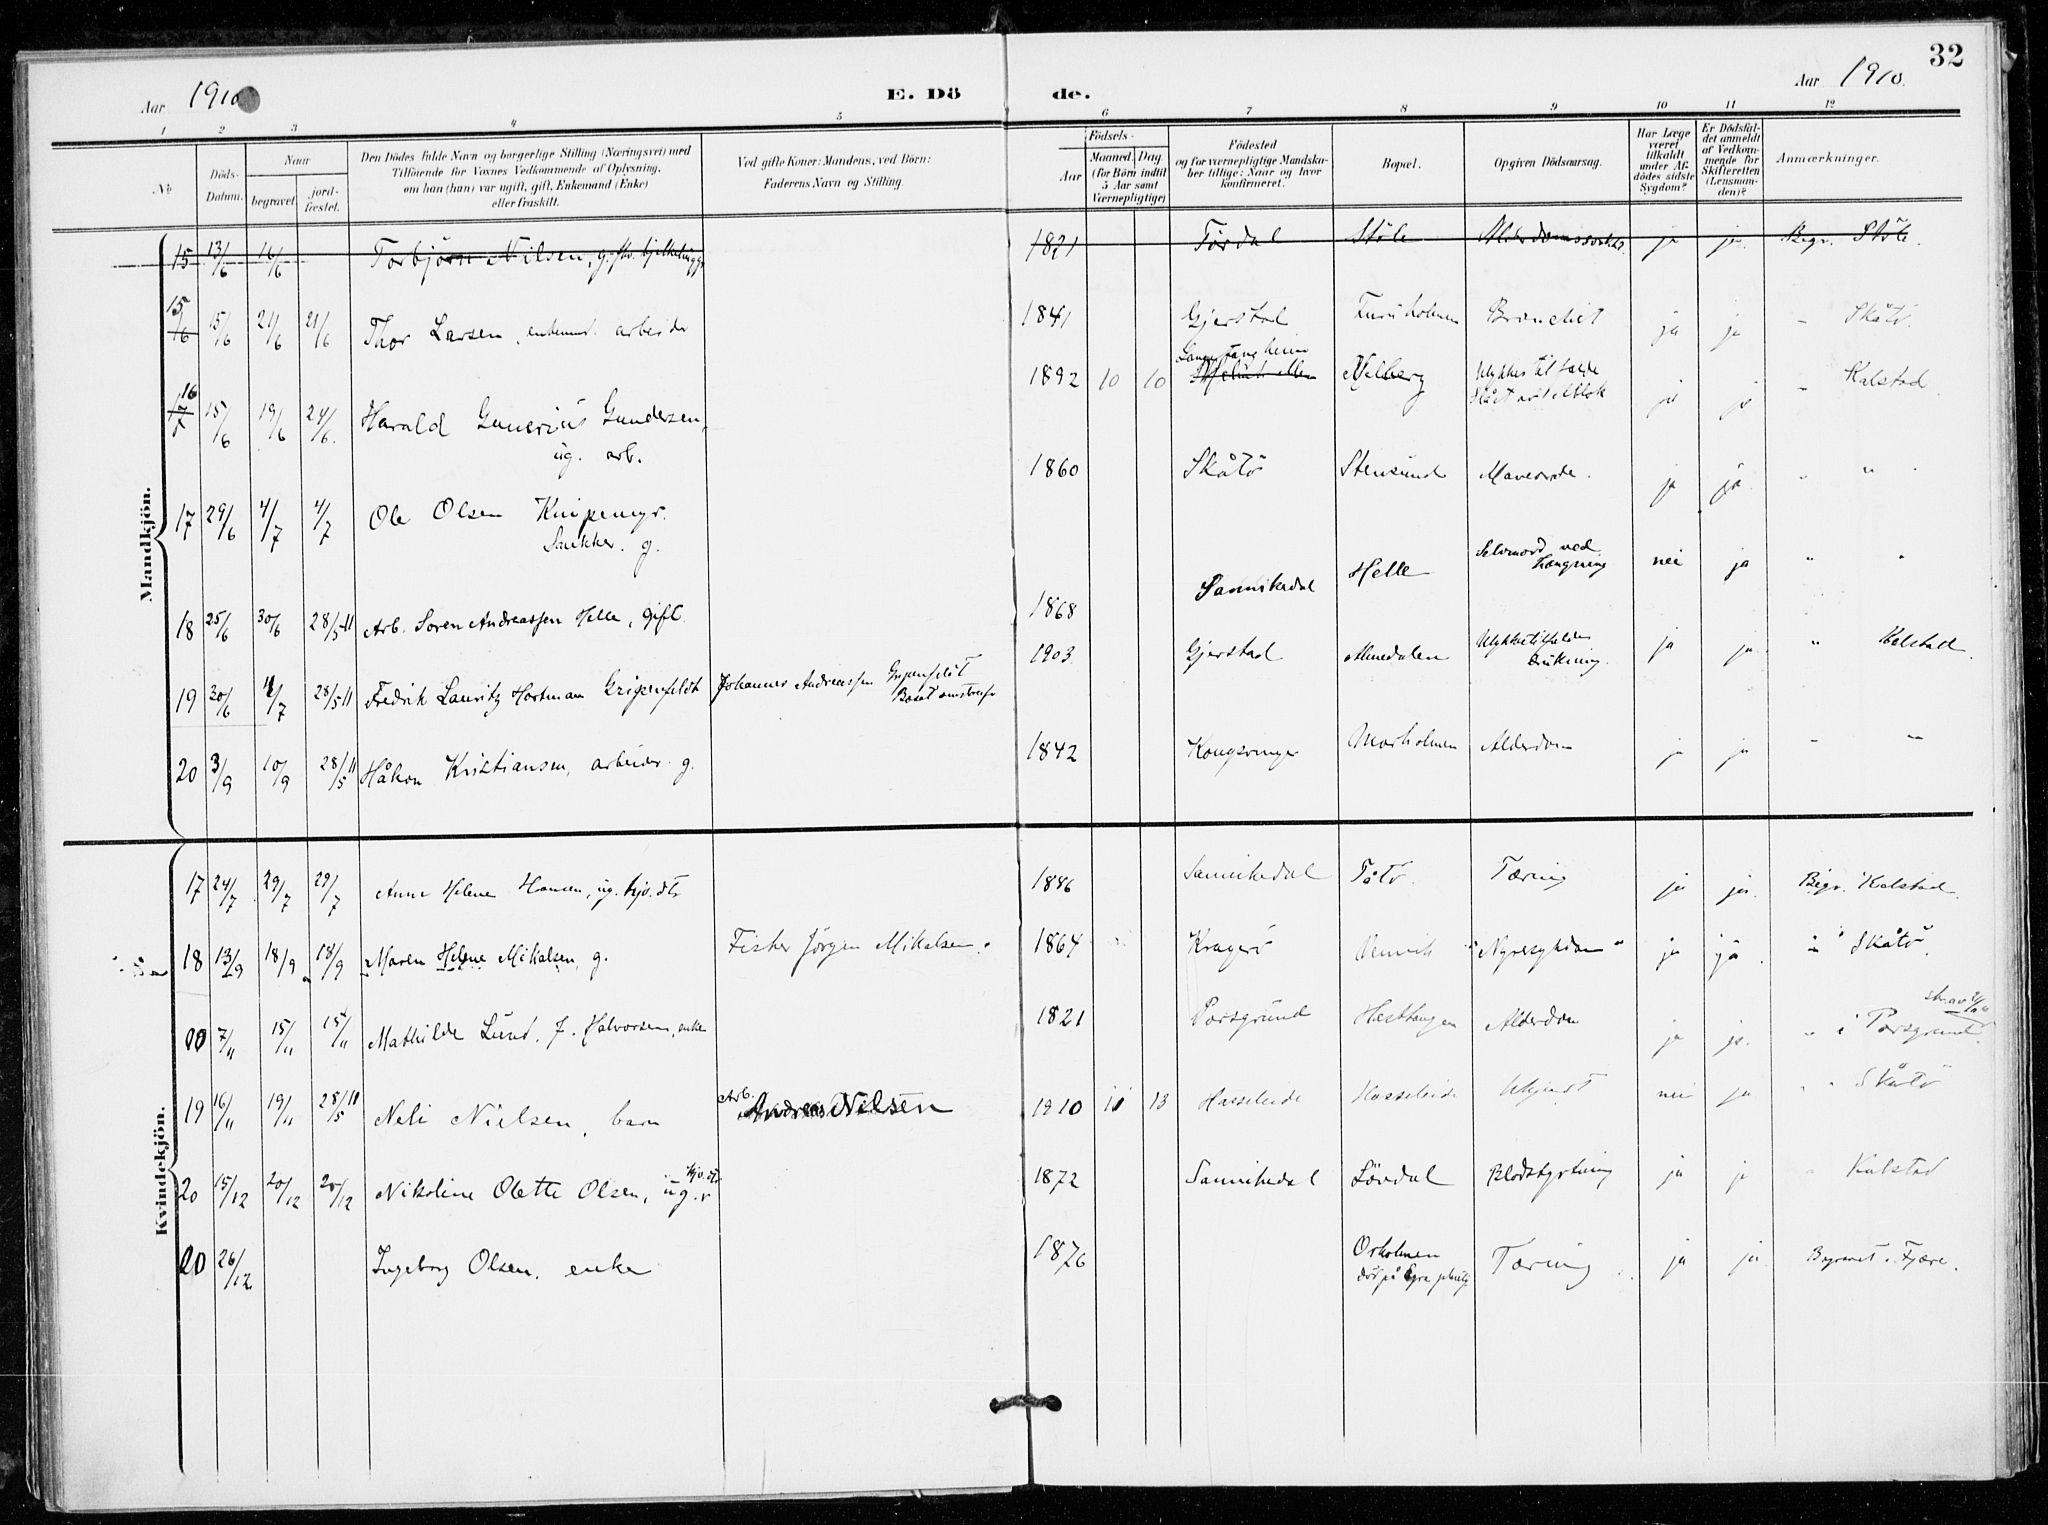 32
Aar 1910
E. Dö de.
Aar 1910.
1 2 3 4 5 6 7 8 9 10 11 12
No
Döds-
Datum.
Naar
begravet.
jord-
fæstet.
Den Dödes fulde Navn og borgerlige Stilling (Næringsvei) med
Tilföiende for Voxnes Vedkommende af Oplysning,
om han (hun) var ugift, gift, Enkemand (Enke)
eller fraskilt.
Ved gifte Koner: Mandens, ved Börn:
Faderens Navn og Stilling.
Födsels-
Aar
Maaned. Dag.
(for Börn indtil
5 Aar samt
Værnepligtige)
Födested
og for værnepligtige Mandska-
ber tillige: Naar og hvor
konfirmeret.
Bopæl.
Opgiven Dödsaarsag.
Har Læge
været
tilkaldt
under Af-
dödes sidste
Sygdom?
Er Dödsfal-
det anmeldt
af Vedkom-
mende for
Skifteretten
(Lensman-
den)?
Anmærkninger.
Mandkjön.
15 13/6 16/6 Torbjörn Nilsen, g. 1821 Tördal Stöle ja ja. Begr. Stöle.
15 15/6 21/6 21/6 Thor Larsen, enkemd. arbeider 1841 Gjerstad Furuholmen Bronchit ja ja " Skåtö.
16 15/6 19/6 24/6 Harald Gunerius Gundersen, 1892 10 10 Nylberg ja ja " Kalstad
ug. arb.
17 29/6 4/7 4/7 Ole Olsen Knipemyr. 1860 Skåtö Stensund ja ja " "
Snekker. g.
18 25/6 30/6 28/5-11 Arb. Soren Andreassen Helle, gift 1868 Sannikedal Helle Selvmord ved hængning nei ja " "
19 30/6 4/7 28/5 11 Fredrik Lauritz Hartman Gripenfeldt Johannes Andreassen 1903 Gjerstad Almedalen Ulykkestilfelde drukning. ja ja " Kalstad.
20 3/9 10/9 28/5 11 Håkon Kristiansen, arbeider. g. 1842 Kongsvinger Alderdom ja ja " "
Kvindekjön.
17 24/7 29/7 29/7 Anne Helene Hansen, ug. 1846 Sannikedal Tåtö. Tæring ja ja. Begr. Kalstad.
18 13/9 18/9 18/9 Maren Helene Mikalsen, g. Fisker Jörgen Mikalsen. 1864 Kragerö "Nyresygdom" ja ja. " Skåtö.
7/11 15/11 15/11 Mathilde Lund, f. Halvorsen, enke 1821 Porsgrund Alderdom ja ja. " i Porsgrund.
19 16/11 19/11 28/5 11 Neli Nielsen, barn Arb. Andreas Nilsen 1910 11 13 Hasseleide Hasseleide Ukjendt nei ja " " Skåtö
20 15/12 20/12 20/12 Nikoline Olette Olsen, ug. 1872 Sannikedal Lövdal Blodstyrtning ja ja " Kalstad
26/12 Ingeborg Olsen. enke 1876 Tæring ja ja. Begravet i Fjære.